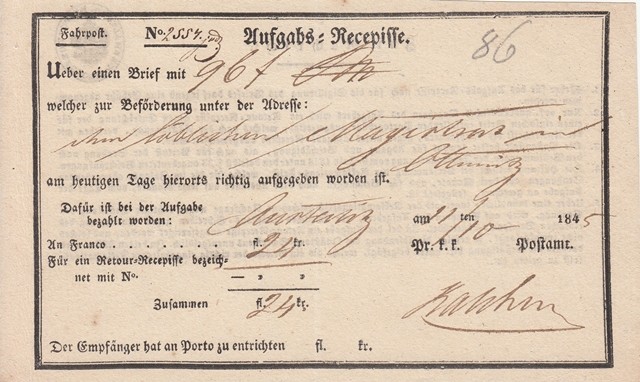 Fahrpost. No. 2554. Aufgabs-Recepisse. 86
Ueber einen Brief mit 96 f
welcher zur Beförderung unter der Adresse:
löblichen Magistrat in
Ollmütz
am heutigen Tage hierorts richtig aufgegeben worden ist.
Dafür ist bei der Aufgabe
bezahlt worden: Austerlitz am 11/10 ten 1845
An Franco . . . . . . . fl. 24 kr. Pr. k. k. Postamt.
Für ein Retour-Recepisse bezeich-
net mit No. — „ „
Zusammen fl. 24 kr.
Der Empfänger hat an Porto zu entrichten fl. kr.